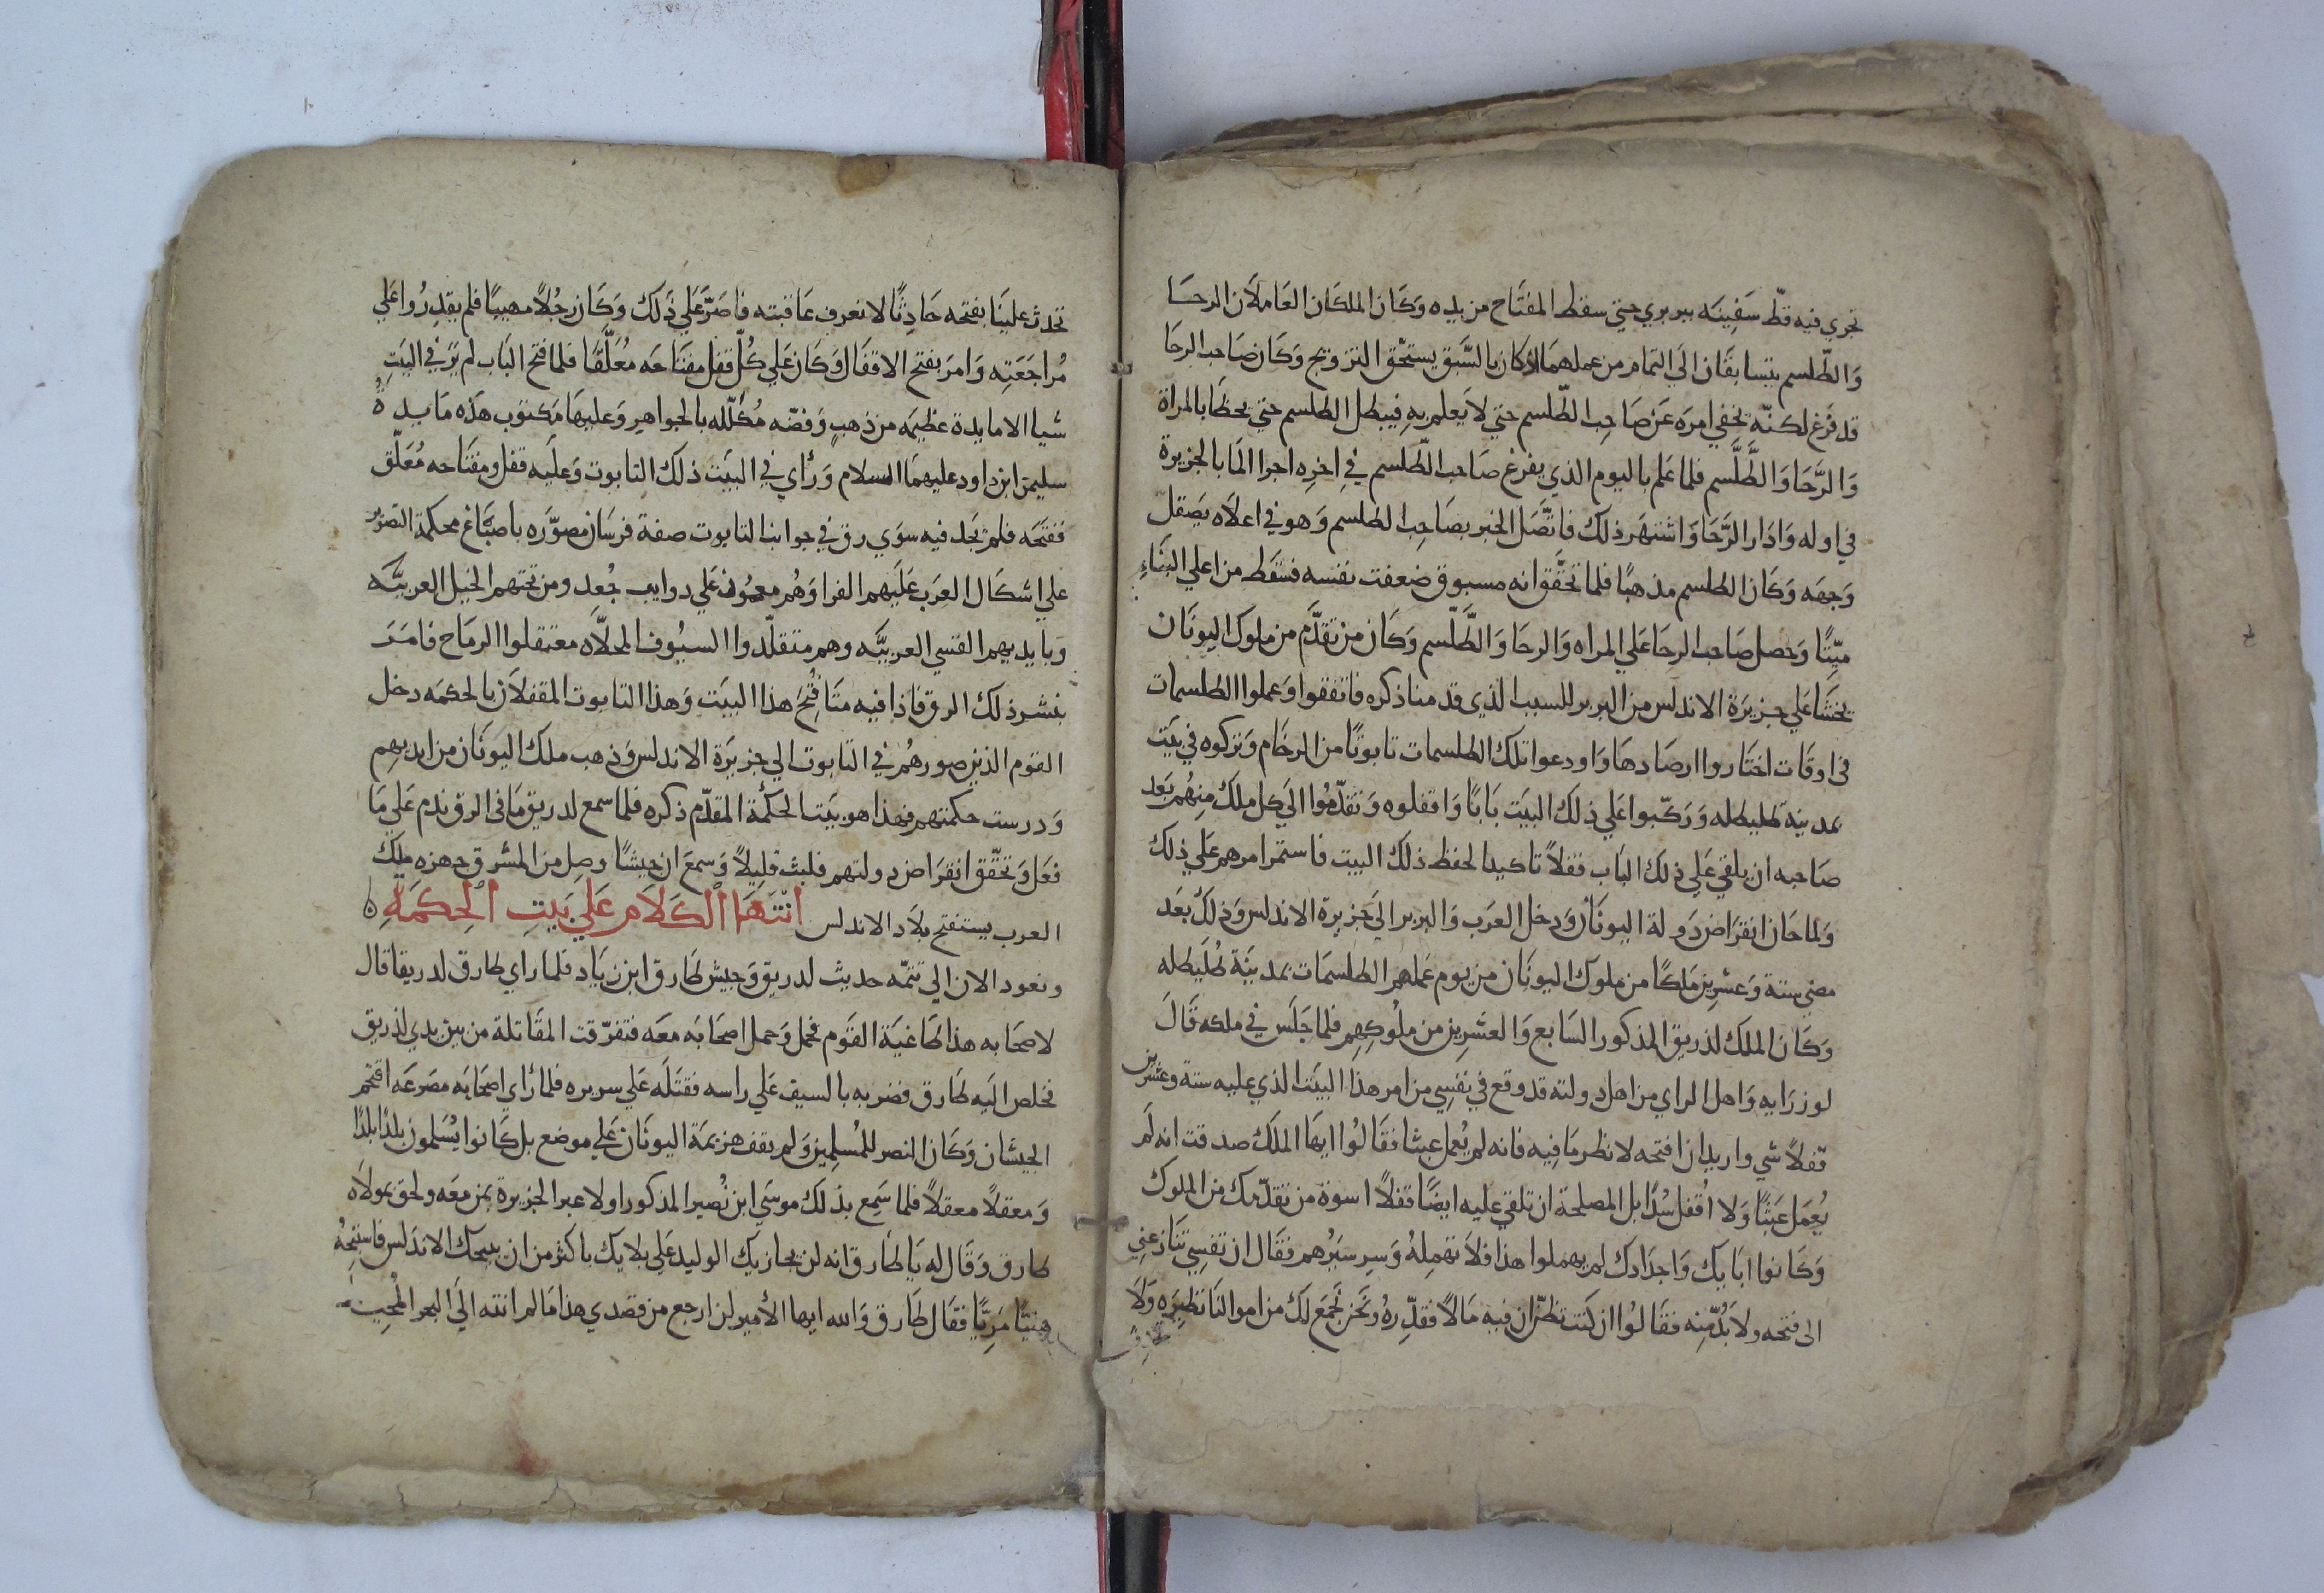 تجري فيه قطّ سَفِينَه ببربري حتي سقط المفتَاح من يده وَكَان الملكَان العَاملاَن الرحَا
وَالطّلسم يتسابقَان الَي التمَام من عملهمَا اذ كان بالسَّبق يستحْق التزويج وَكَان صَاحب الرحَا
قد فَرَغ لكنّه يخفي امرَه عَن صَاحِب الطّلسم حتي لاَ يَعلم بهِ فيبطل الطلسم حتي يحظَا بالمراة
وَالرَّحَا وَالطَّلَّسم فلما عَلم باليوم الذي يفرغ صَاحب الطّلسم فيِ اخرِه اجرا المَا بالجزيرة
في اوله وَادَار الرَّحَا وَاشتهَر ذلك فاتَّصَل الخبر بصَاحِب الطلسم وَهو في اعلاَه يَصقل
وَجهَه وَكَان الطلسم مذهبًا فلما تحقَّق انه مسبوق ضعفت نفسه فسَقَط من اعلي البنَاءِ
ميّتًا وَحصل صَاحب الرحَا علي المراه وَالرحَا وَالطَّلّسم وَكَان من تقدَّم من ملوك اليونَان
يخشَا علي جزيرَة الاندلس من البربر للسبب الذي قدمنا ذكره فاتفقوا وَعملوا الطلسمات
في اوقَات اختَاروا ارصَادهَا وَاودعوا تلك الطلسمات تابوتًا من الرخَام وَتركوه في بَيَت
بمدينة طليطله وَرَكّبوا عَلي ذلك البيَت بَابًا وَاقفلوه وَتقدّمُوا الَي كل ملك مِنهُم بَعَد
صَاحبه ان يلقي عَلي ذلك البَاب قفلاً تاكيدا لحفظ ذلك البيت فاستمَر امرهم عَلي ذلك
وَلما حَان انقرَاض دَولة اليونَان وَدخل العرَب وَالبربر الَي جَزيرة الاندلس وَذلكَ بَعَد
مضي ستة وَعشرِين مَلكًا من ملوك اليونَان من يوم عَملهم الطلسمَات بمدينَة طُلَيطله
وَكَان الملك لذريق المذكور السَابع وَالعشرِين من ملُوكهِم فلما جَلَس في ملكه قَالَ
لوزرَايه وَاهل الراي من اهل دولته قد وقع في نفسِي من امر هذا البيَت الذي عليه ستة وعشرين
قَفلاً شي واريد ان افتحه لانظر مَا فِيه فانه لم يُعمل عبثا فقَالُوا ايهَا الملَك صدقت انه لَم
يُعِمَل عَبَثًا وَلا اُقفل سُدًا بل المصلحة ان تلقي عليه ايضًا قفلاً اسوة من تقدّمك من الملوك
وَكَانوا ابَابك وَاجدَادك لم يهملوا هذا فلاَ تهمِلهُ وَسِر سَيْرُهم فقَال ان نفسِي تنَازعنِي
الي فتحه ولاَ بُدّ مِنه فقَالوُا ان كنت تظنّ ان فيه مَالاً فقدّره وَنحن نجمَع لك من اموالنَا نظيرَه وَلاَ
تحدث علينَا بفتحه حَادِثًا لا نعرف عَاقبته فاصَرَّ عَلي ذَلك وَكَان رجُلاً مهيبًا فلم يقدِرُوا عَلي
مُراجَعَتِه وَامرَ بفتح الاقفَال وَكَان عَلي كُلّ قفل مفتَاحَه مُعَلَّقًا فلما فتح البَاب لم يَرَ في البَيَتِ
شيا الا مايدة عظيمَه من ذهبٍ وَفضّه مكَلّله بالجواهر وَعليهَا مَكتوب هَذه مَايدةُ
سليمن ابن داود عليهمَا السلام وَرأي في البيَت ذلك التابوت وَعليه قفل ومفتَاحه مُعَلّق
ففتَحَه فلم يَجد فيه سوَي رق في جوانب التابوت صفة فرسَان مصوّرَه باصبَاغ محكمة التصوير
علي اشكَال العرَب عَلَيهم الفرا وَهُم معممُون عَلي دوايب جُعدٍ ومن تحتهم الخيل العربيَّه
وبايديهم القسي العربيَّه وهم متقلّدوا السيُوف المحلاَّه معتقلوا الرمَاح فامَرَ
بنشر ذلك الرق فاذا فيه متَا فُتِحَ هَذا البيَت وَهذا التابوت المقفلاَن بالحكمَه دخل
القوم الذين صورهُم في التابوت الي جزيرَة الاندلس وَذهب ملك اليونَان من ايديهِم
وَدرست حكمتهم فهذا هو بَيَت الحكمَة المقدّم ذكره فلما سمع لدريق مَا في الرق ندم عَلي مَا
فعَل وَتحقّق انقرَاض دولتهم فلبث قليلاً وَسمعَ ان جيشًا وصل من المشرق جهزه ملك
العرب يستفتح بلاَد الاندلس انْتَهَا الْكَلاَم عَلي بَيَتِ الْحِكمَةِ ه
ونعود الان الي تتمّه حديث لدريق وَجيش طَارق ابن زيَاد فلما راي طارق لدريقا قال
لاصحَابه هذا طَاغيَة القوم فحمل وَحمل اصحَابَه معَه فتفرّقت المقَاتلة من بين يدي لذريق
فخلص اليَه طَارق فضربه بالسيف عَلي راسه فقتَلَه عَلي سريره فلما رَأي اصحَابَه مصَرعَه اقتحم
الجيشان وَكَان النصر للمُسلِمين وَلم يقف هزيمَة اليونَان عَلي موضع بل كَانوا يُسَلمون بلدًا بلدًا
وَمعقلاً معقلاً فلما سَمِع بذلك موسَي ابن نُصير المذكور اولا عبر الجزيرة بمن معَه ولحق بمولاَه
طارق وَقَال له يَا طَارق انه لن يجازيك الوليد عَلي بلايك باكثر من ان يمنحك الاندَلس فاستبِحْهُ
هنيًّا مَرِيًّا فقَال طَارق وَالله ايها الأمير لن ارجع من قصدي هذا مَا لم انته الَي البحر المُحِيط